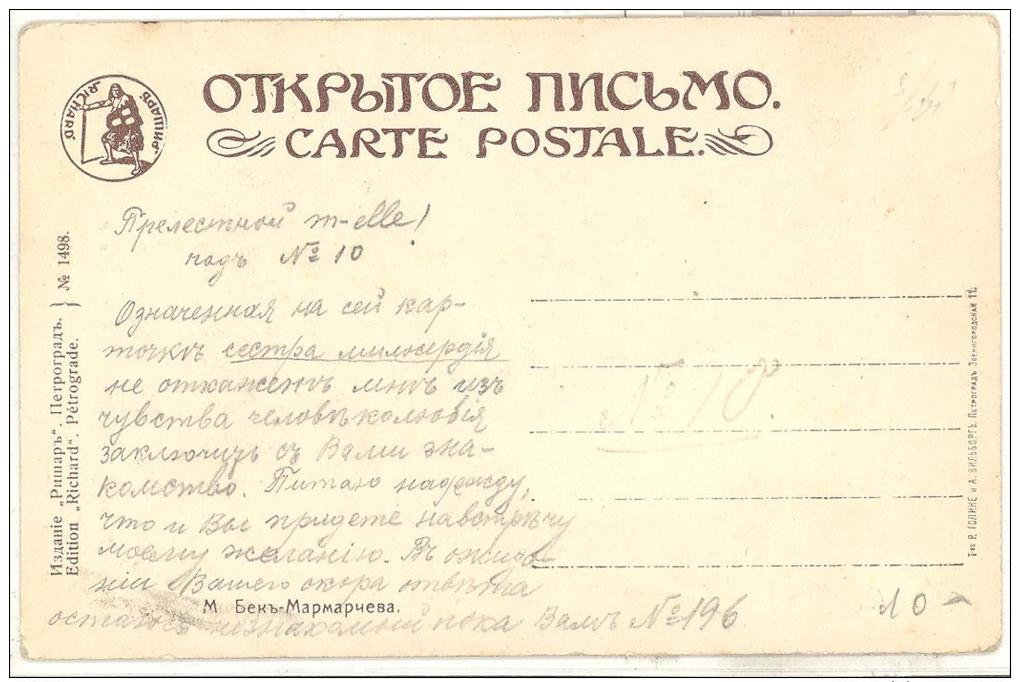 ОТКРЫТОЕ ПИСЬМО.
CARTE POSTALE.
„RICHARD“
„РИШАРЪ“
Прелестной m-elle!
подъ № 10
Означенная на сей кар-
точкѣ сестра милосердія
не откажетъ мнѣ изъ
чувства человѣколюбія
заключить съ Вами зна-
комство. Питаю надежду,
что и Вы придете навстрѣчу
моему желанію. Въ ожида-
ніи Вашего скора отвѣта
остаюсь незнакомый пока Вамъ № 196
М. Бекъ-Мармарчева.
№ 10
10
Изданіе „Ришаръ“. Петроградъ.
Edition „Richard“. Pétrograde.
№ 1498.
Т-во Р. ГОЛИКЕ и А. ВИЛЬБОРГЪ. ПЕТРОГРАДЪ. ЗВЕНИГОРОДСКАЯ 11.